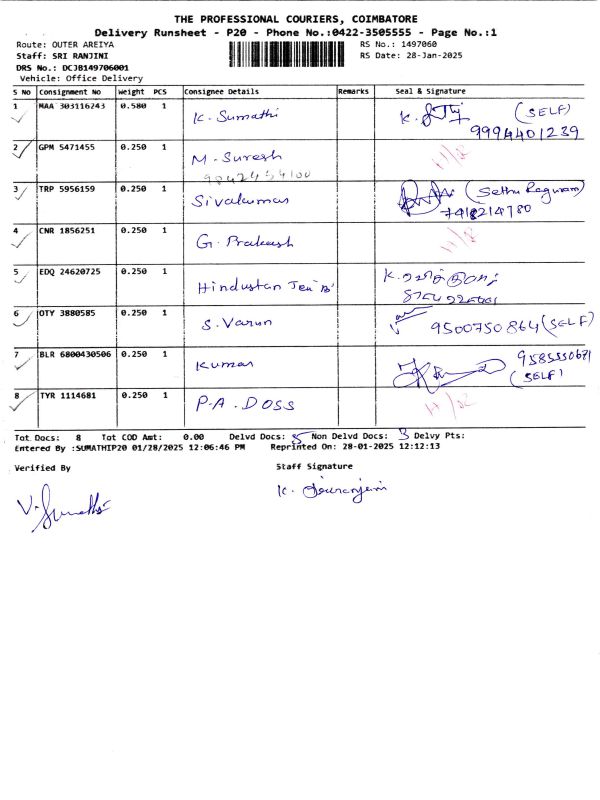 THE PROFESSIONAL COURIERS, COIMBATORE
Delivery Runsheet - P20 - Phone No.:0422-3505555 - Page No.:1
Route: OUTER AREIYA RS No.: 1497060
Staff: SRI RANJINI RS Date: 28-Jan-2025
DRS No.: DCJB149706001
Vehicle: Office Delivery
S No Consignment No Weight PCS Consignee Details Remarks Seal & Signature
1 MAA 303116243 0.580 1 K. Sumathi (SELF)
9994401239
2 GPM 5471455 0.250 1 M. Suresh
3 TRP 5956159 0.250 1 Sivakumar (Sethu Raguram)
7418214780
4 CNR 1856251 0.250 1 G. Prakash
5 EDQ 24620725 0.250 1 Hindustan
6 OTY 3880585 0.250 1 S. Varun 9500750864 (SELF)
7 BLR 6800430506 0.250 1 Kumar
(SELF)
8 TYR 1114681 0.250 1 P.A. DOSS
Tot Docs: 8 Tot COD Amt: 0.00 Delvd Docs: 5 Non Delvd Docs: 3 Delvy Pts:
Entered By :SUMATHIP20 01/28/2025 12:06:46 PM Reprinted On: 28-01-2025 12:12:13
Verified By Staff Signature